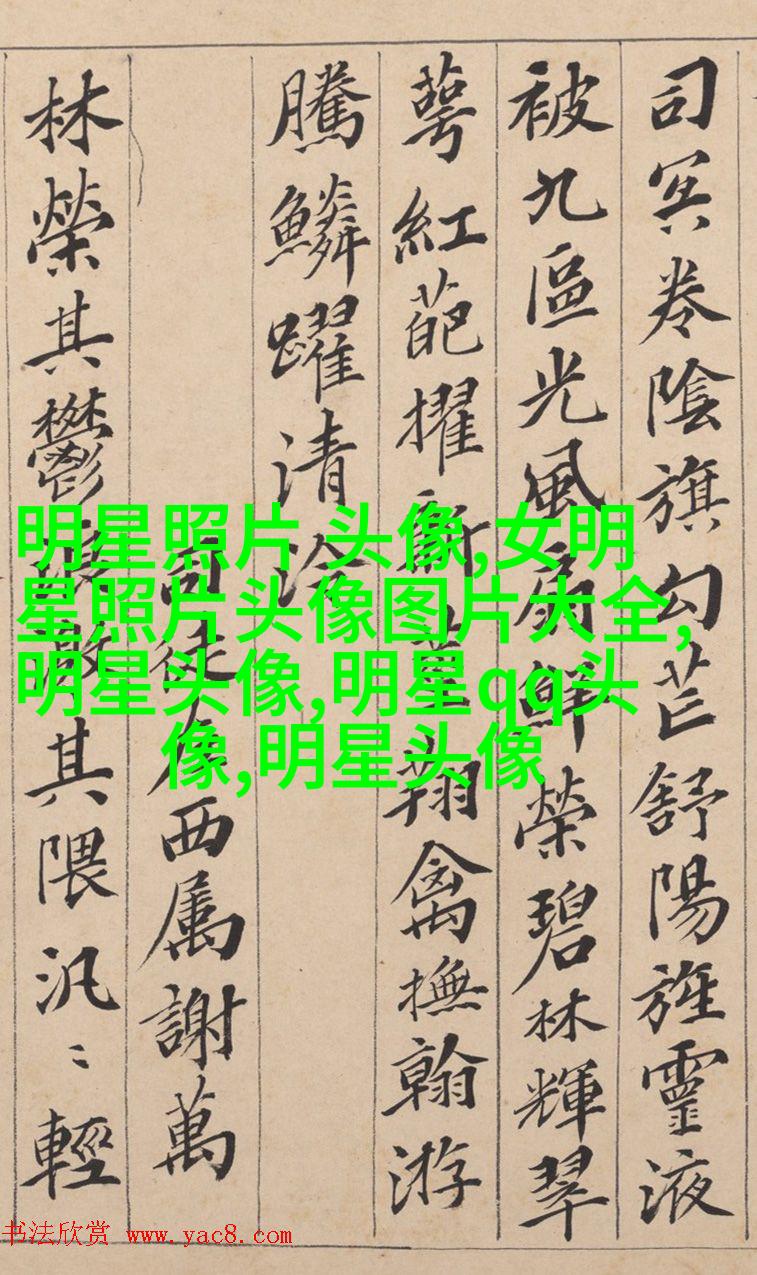 司冥卷陰旗勾芒舒陽旌靈液
被九區光風扇鮮榮碧林輝翠
萼紅葩擢新莖翔禽撫翰游
騰鱗躍清泠
司徒左西属謝萬
林榮其鬱浪激其隈汎〻輕
明星照片 头像,女明
星照片头像图片大全,
明星头像,明星qq头
像,明星头像
书法欣赏 www.yac8.com